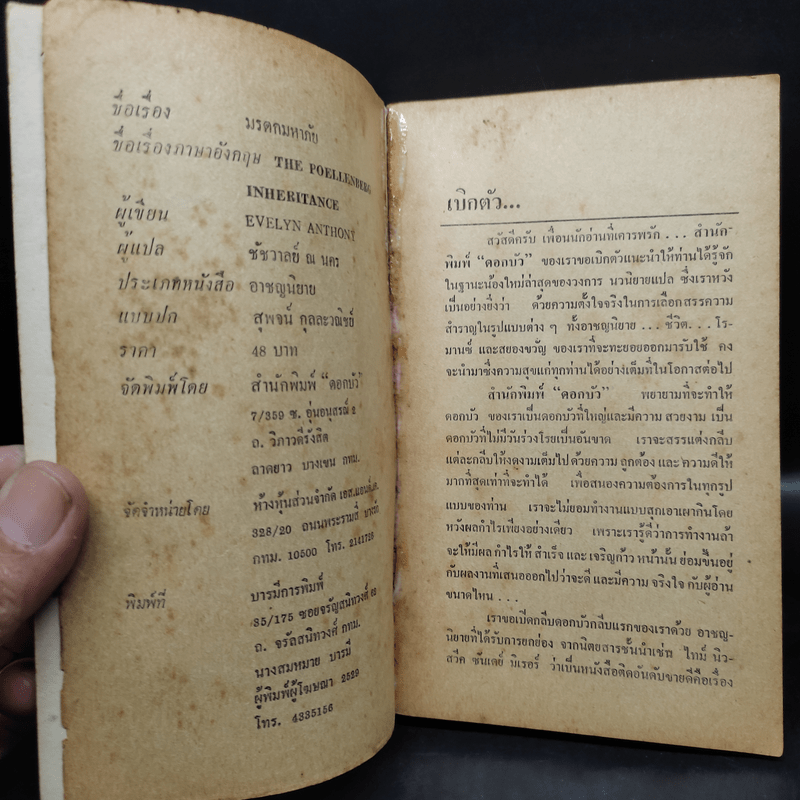 ชื่อเรื่อง มรดกมหาภัย
ชื่อเรื่องภาษาอังกฤษ THE POELLENBERG
INHERITANCE
ผู้เขียน EVELYN ANTHONY
ผู้แปล ชัชวาลย์ ณ นคร
ประเภทหนังสือ อาชญนิยาย
แบบปก สุพจน์ กุลละวณิชย์
ราคา 48 บาท
จัดพิมพ์โดย สำนักพิมพ์ “ดอกบัว”
7/359 ซ. อุ่นอนุสรณ์ 2
ถ. วิภาวดีรังสิต
ลาดยาว บางเขน กทม.
จัดจำหน่ายโดย ห้างหุ้นส่วนจำกัด
328/20 ถนนพระรามสี่
กทม. 10500 โทร. 2141726
พิมพ์ที่ บารมีการพิมพ์
35/175 ซอยจรัญสนิทวงศ์
ถ. จรัลสนิทวงศ์ กทม.
นางสมหมาย บารมี
ผู้พิมพ์ผู้โฆษณา 2529
โทร. 4335156
เบิกตัว...
สวัสดีครับ เพื่อนนักอ่านที่เคารพรัก ... สำนัก-
พิมพ์ “ดอกบัว” ของเราขอเบิกตัวแนะนำให้ท่านได้รู้จัก
ในฐานะน้องใหม่ล่าสุดของวงการ นวนิยายแปล ซึ่งเราหวัง
เป็นอย่างยิ่งว่า ด้วยความตั้งใจจริงในการเลือกสรรความ
สำราญในรูปแบบต่าง ๆ ทั้งอาชญนิยาย ... ชีวิต... โร-
มานซ์ และสยองขวัญ ของเราที่จะทะยอยออกมารับใช้ คง
จะนำมาซึ่งความสุขแก่ทุกท่านได้อย่างเต็มที่ในโอกาสต่อไป
สำนักพิมพ์ “ดอกบัว” พยายามที่จะทำให้
ดอกบัว ของเราเป็นดอกบัวที่ใหญ่และมีความ สวยงาม เป็น
ดอกบัวที่ไม่มีวันร่วงโรยเป็นอันขาด เราจะสรรแต่งกลีบ
แต่ละกลีบให้งดงามเต็มไปด้วยความ ถูกต้อง และ ความดีให้
มากที่สุดเท่าที่จะทำได้ เพื่อสนองความต้องการในทุกรูป
แบบของท่าน เราจะไม่ยอมทำงานแบบสุกเอาเผากินโดย
หวังผลกำไรเพียงอย่างเดียว เพราะเรารู้ดีว่าการทำงานล้า
จะให้มีผล กำไรให้ สำเร็จ และ เจริญก้าว หน้านั้น ย่อมขึ้นอยู่
กับผลงานที่เสนอออกไปว่าจะดี และมีความ จริงใจ กับผู้อ่าน
ขนาดไหน ...
เราขอเปิดกลีบดอกบัวกลีบแรกของเราด้วย อาชญ-
นิยายที่ได้รับการยกย่อง จากนิตยสารชั้นนำเช่น ไทม์ นิว-
สวีค ซันเดย์ มิเรอร์ ว่าเป็นหนังสือติดอันดับขายดีคือเรื่อง